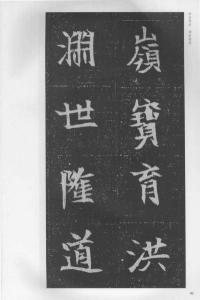 嶺寶育洪
澜世隆道